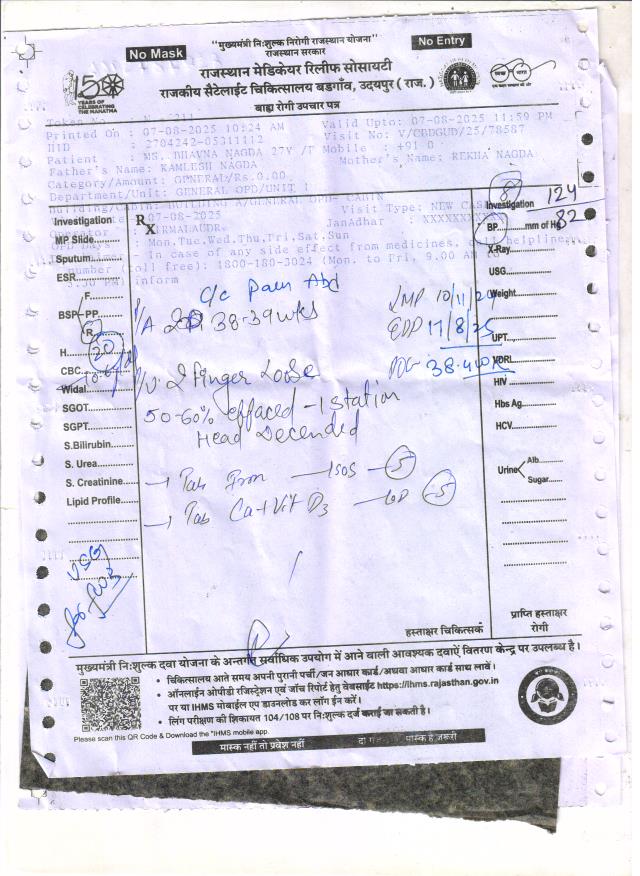 "मुख्यमंत्री निःशुल्क निरोगी राजस्थान योजना"
राजस्थान सरकार
No Mask
No Entry
राजस्थान मेडिकेयर रिलीफ सोसायटी
राजकीय सैटेलाईट चिकित्सालय बडगाँव, उदयपुर ( राज. )
बाह्य रोगी उपचार पत्र
150
YEARS OF
CELEBRATING
THE MAHATMA
Printed On : 07-08-2025 10:24 AM Valid Upto: 07-08-2025 11:59 PM
HID : 2704242-05311112 Visit No: V/CBDGUD/25/78587
Patient : MS. BHAVNA NAGDA 27Y /F Mobile : +91 0
Father's Name: KAMLESH NAGDA Mother's Name: REKHA NAGDA
Category/Amount: GENERAL/Rs.0.00
Department/Unit: GENERAL OPD/UNIT 1
Building/Cabin: BUILDING A/GENERAL OPD- CABIN
07-08-2025 Visit Type: NEW CASE
JanAdhar : XXXXXXXXXX
OPD Days : Mon,Tue,Wed,Thu,Fri,Sat,Sun
- In case of any side effect from medicines, call helpline
number (toll free): 1800-180-3024 (Mon. to Fri. 9.00 AM to
5.30 PM) inform
Rx
Investigation
MP Slide
Sputum
ESR
F.
BSP PP.
R.
H. 20
CBC
Widal
SGOT
SGPT
S.Bilirubin
S. Urea
S. Creatinine
Lipid Profile
USG
C/c Pain Abd
P/A 38-39 wks
P/V 2 Finger Loose
50-60% effaced -1 station
Head Decended
→ Tab Iron 1SOS 5
→ Tab Ca+Vit D3 1OD 5
LMP 10/11/24
EDD 17/8/25
POG 38.4 WK
8
Investigation 124
BP mm of Hg 82
X-Ray
USG
Weight
UPT
VDRL
HIV
Hbs Ag.
HCV
Urine Alb.
Sugar
हस्ताक्षर चिकित्सक
प्राप्ति हस्ताक्षर
रोगी
मुख्यमंत्री निःशुल्क दवा योजना के अन्तर्गत सर्वाधिक उपयोग में आने वाली आवश्यक दवाऐं वितरण केन्द्र पर उपलब्ध है।
• चिकित्सालय आते समय अपनी पुरानी पर्ची/जन आधार कार्ड/अथवा आधार कार्ड साथ लावें।
• ऑनलाईन ओपीडी रजिस्ट्रेशन एवं जाँच रिपोर्ट हेतु वेबसाईट https://ihms.rajasthan.gov.in
पर या IHMS मोबाईल एप डाउनलोड कर लॉग ईन करें।
• लिंग परीक्षण की शिकायत 104/108 पर निःशुल्क दर्ज कराई जा सकती है।
Please scan this QR Code & Download the "IHMS mobile app.
मास्क नहीं तो प्रवेश नहीं
मास्क है जरूरी